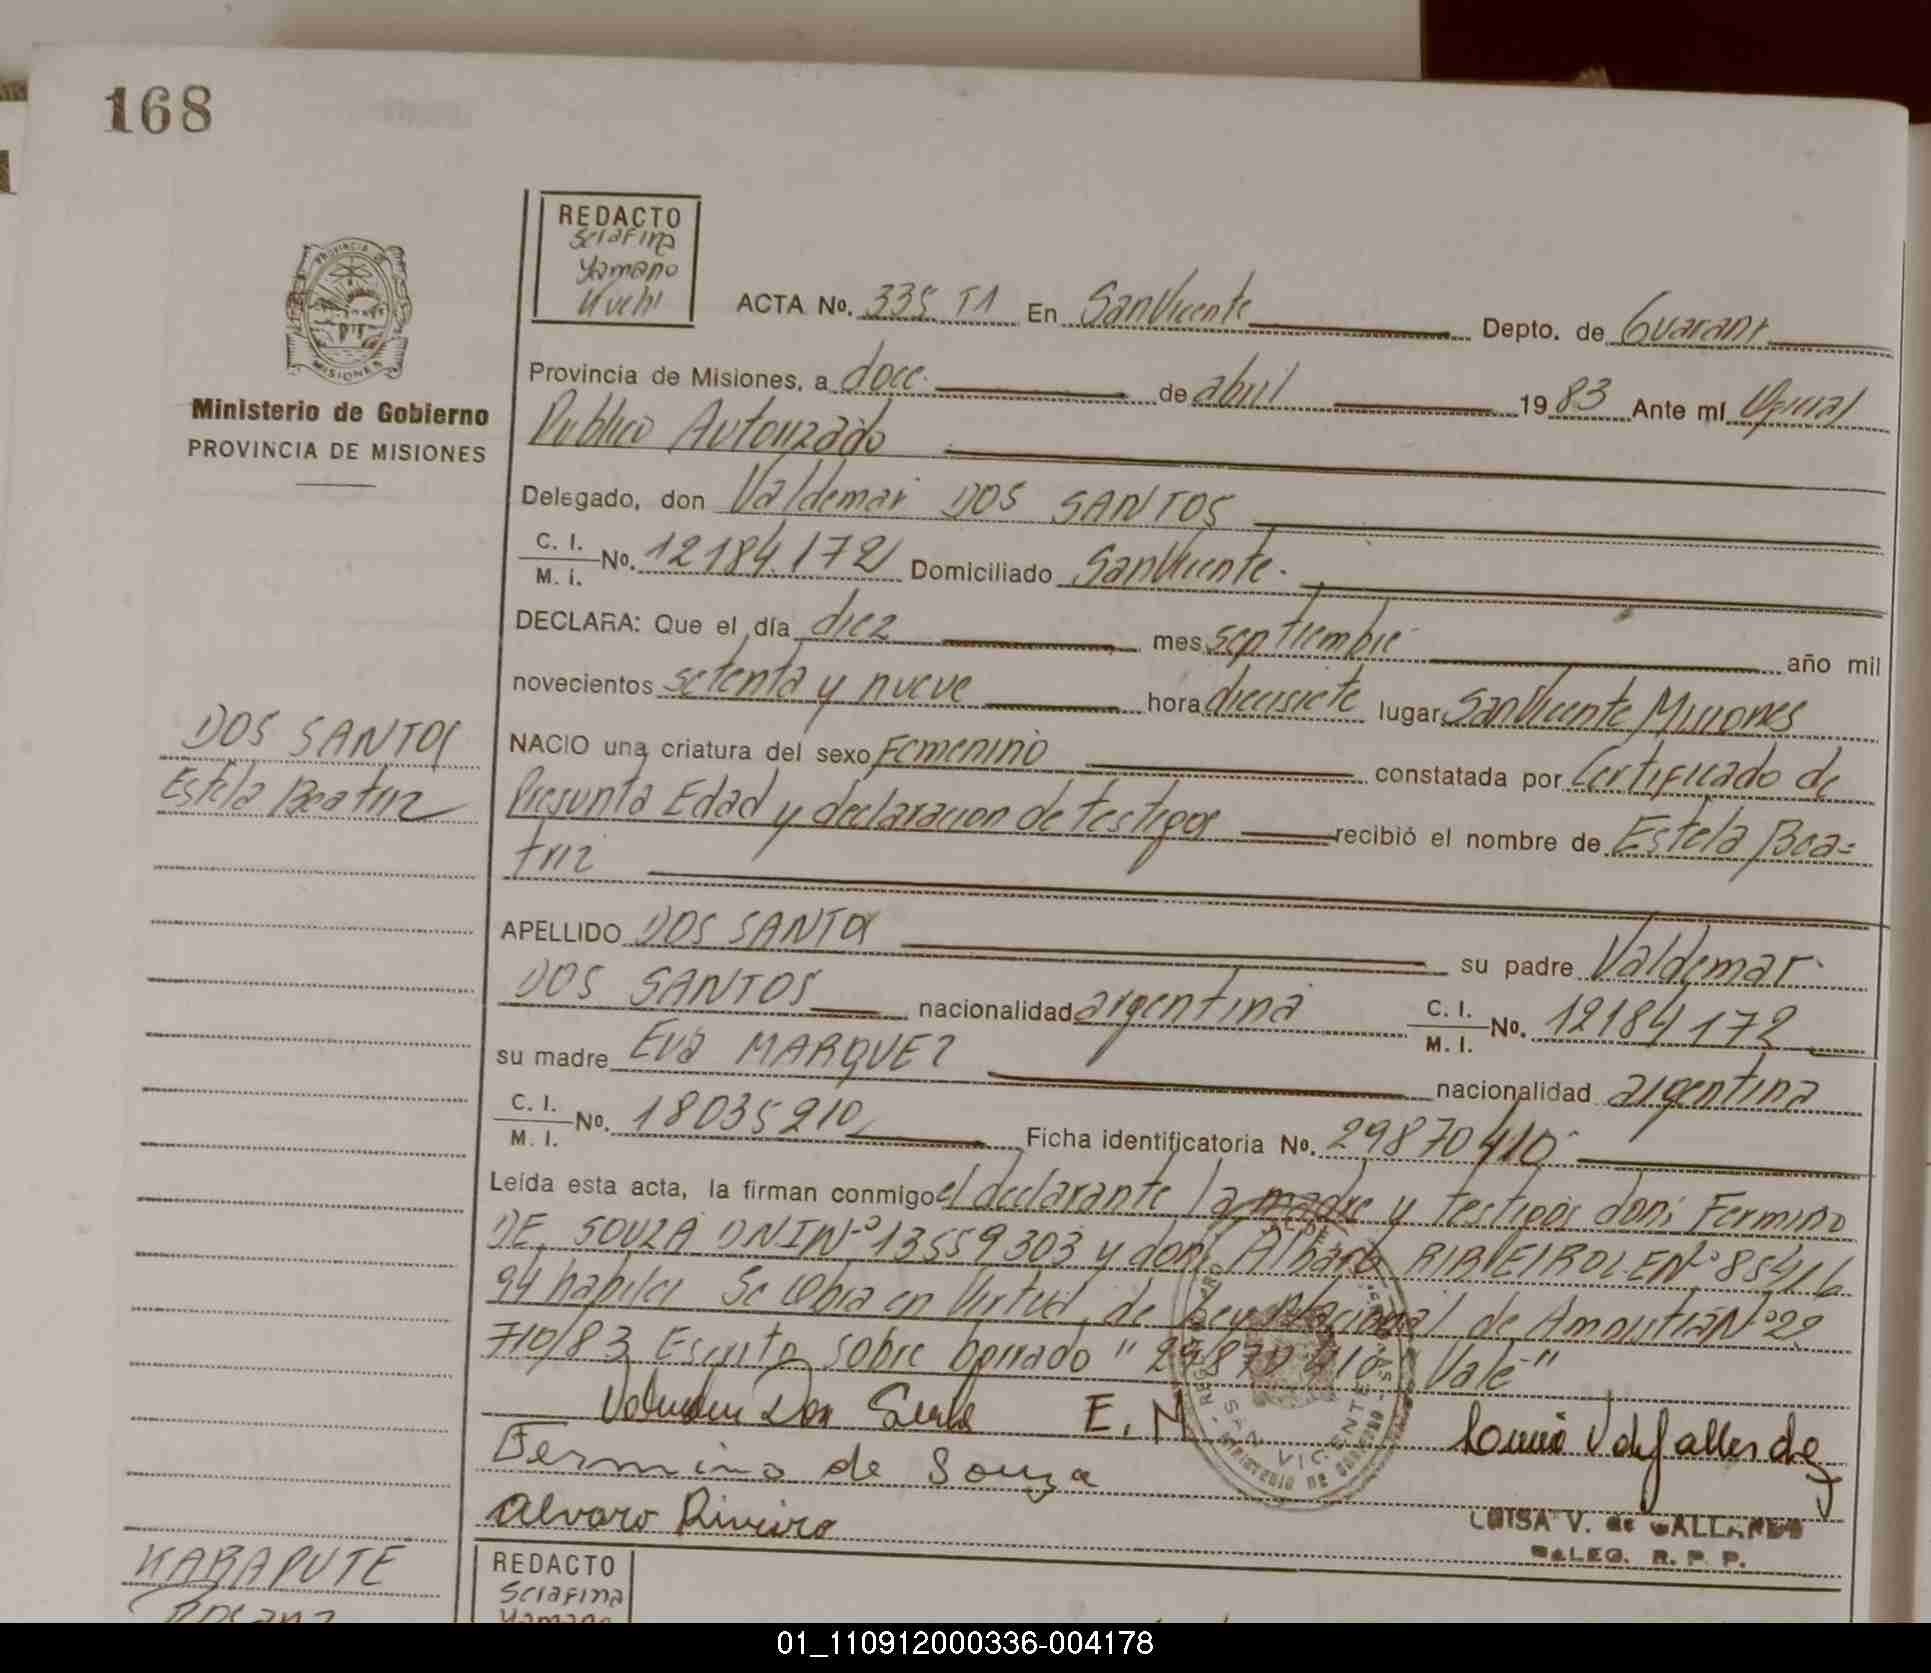 168
REDACTO
Serafina
Yamano
Kuchi
PROVINCIA DE
MISIONES
Ministerio de Gobierno
PROVINCIA DE MISIONES
ACTA No. 335 T1 En San Vicente Depto. de Guarani
Provincia de Misiones, a doce de abril 1983 Ante mí Oficial
Publico Autorizado
Delegado, don Valdemar DOS SANTOS
C. I. / M. I. No. 12184.172 Domiciliado San Vicente.
DECLARA: Que el día diez mes septiembre año mil
novecientos setenta y nueve hora diecisiete lugar San Vicente Misiones
DOS SANTOS
Estela Beatriz
NACIO una criatura del sexo Femenino constatada por Certificado de
Presunta Edad y declaracion de testigos recibió el nombre de Estela Bea=
triz
APELLIDO DOS SANTOS su padre Valdemar
DOS SANTOS nacionalidad argentina C. I. / M. I. No. 12184172
su madre Eva MARQUEZ nacionalidad argentina
C. I. / M. I. No. 18035210 Ficha identificatoria No. 29870410
Leída esta acta, la firman conmigo el declarante la madre y testigos don: Fermino
DE SOUZA DNI Nº 13559303 y don: Alvaro RIBEIRO L.E Nº 85416
94 habiles Se labra en Virtud de Ley Nacional de Amnistia Nº 22
710/83 Escrito sobre borrado "29870410 Vale"
Valdemar Dos Santos E. M
Fermino de Souza
Alvaro Riveiro
SAN VICENTE
LUISA V. de GALLARDO
DELEG. R. P. P.
KARAPUTE
Rosana
REDACTO
Serafina
Yamano
01_110912000336-004178